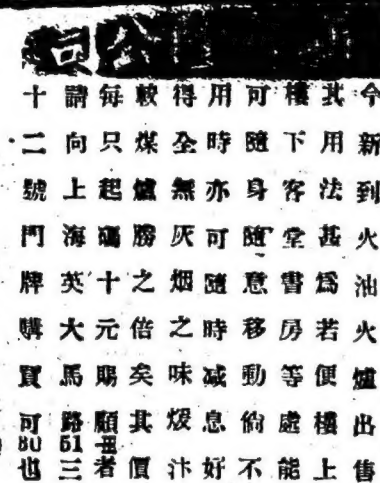 公司
今新到火油火爐出售
其用法甚爲若便樓上
樓下客堂書房等處能
可隨身隨意移動倘不
用時亦可隨時減息好
得全無灰烟之味煖汴
較煤爐勝之倍矣其價
每只起碼十元賜顧者
請向上海英大馬路三
十二號門牌購買可也